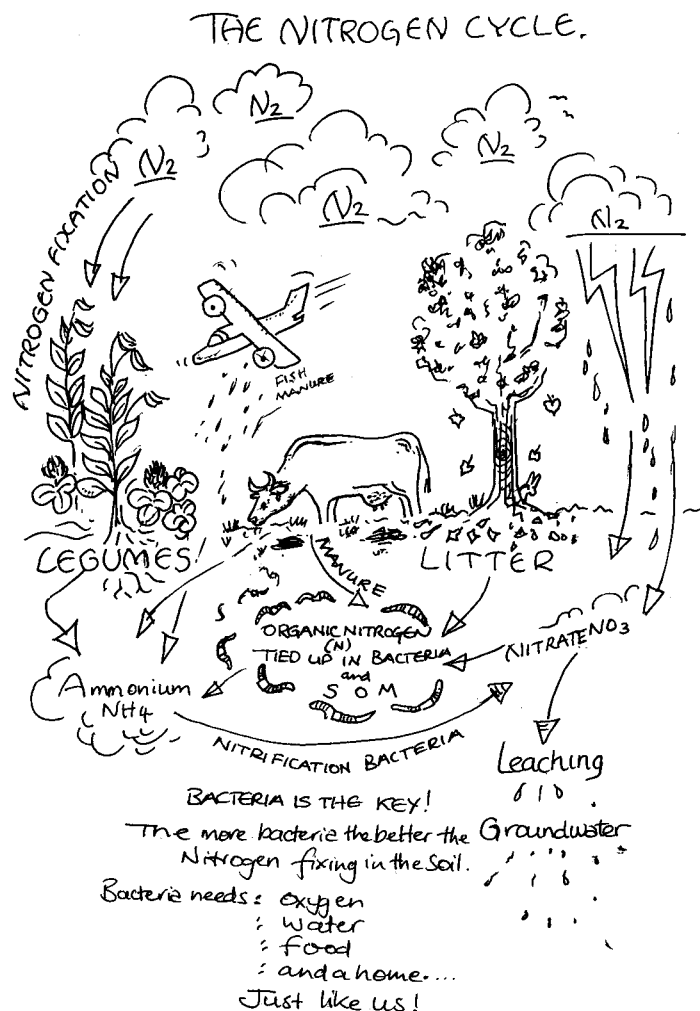 THE NITROGEN CYCLE.
N2
N2
N2
N2
N2
NITROGEN FIXATION
FISH
MANURE
LEGUMES
LITTER
MANURE
ORGANIC NITROGEN
(N)
TIED UP IN BACTERIA
and
S O M
NITRATE NO3
Ammonium
NH4
NITRIFICATION BACTERIA
Leaching
Groundwater
BACTERIA IS THE KEY!
The more bacteria the better the
Nitrogen fixing in the soil.
Bacteria needs : oxygen
: water
: food
: and a home....
Just like us!